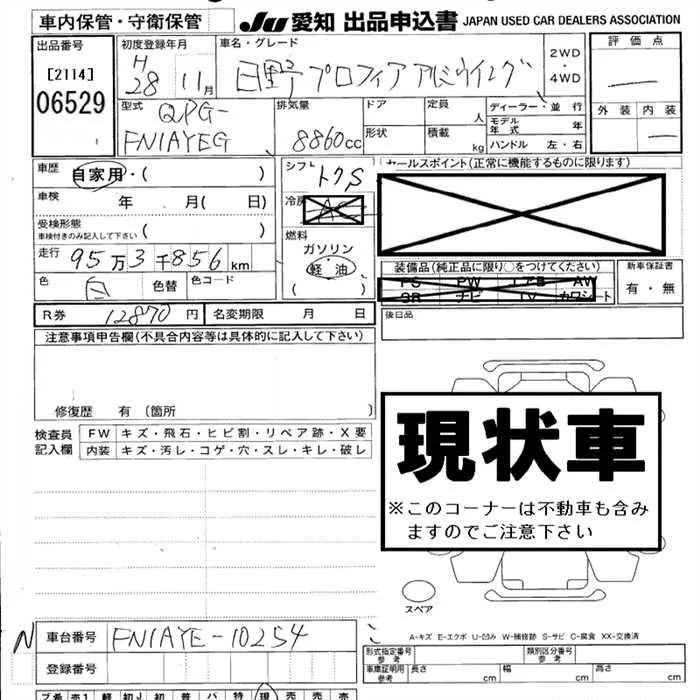 車内保管・守衛保管
JU 愛知 出品申込書 JAPAN USED CAR DEALERS ASSOCIATION
出品番号
[2114]
06529
初度登録年月
H 28 11月
車名・グレード
日野 プロフィア アルミウイング
2WD
・
4WD
評価点
外装 内装
型式
QPG-
FN1AYEG
排気量
8860cc
ドア
形状
定員
人
積載
kg
ディーラー・並行
モデル
年式
年
ハンドル 左・右
車歴
自家用・( )
車検 年 月( 日)
受検形態
車検付きのみ記入して下さい ( )
走行 95万3千856km
色 白 色替 色コード
シフト
トクS
冷房
AC
燃料
ガソリン
軽油
セールスポイント(正常に機能するものに限ります)
装備品(純正品に限り○をつけてください)
PS PW エアB AW
SR ナビ TV カワシート
新車保証書
有・無
R券 12870円 名変期限 月 日
後日品
注意事項申告欄(不具合内容等は具体的に記入して下さい)
修復歴 有 〔箇所 〕
検査員
記入欄
FW キズ・飛石・ヒビ割・リペア跡・X要
内装 キズ・汚レ・コゲ・穴・スレ・キレ・破レ
現状車
※このコーナーは不動車も含み
ますのでご注意下さい
スペア
A-キズ E-エクボ U-凹み W-補修跡 S-サビ C-腐食 XX-交換済
N 車台番号 FN1AYE-10254
登録番号
形式指定番号
参考
類別区分番号
参考
車庫証明用
参考
長さ cm 幅 cm 高さ cm
ブ希 売1 軽 初J 初 普 パ 特 現 売 売 売